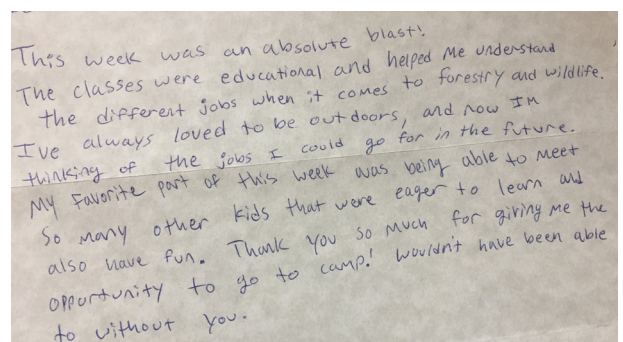 This week was an absolute blast!
The classes were educational and helped me understand
the different jobs when it comes to forestry and wildlife.
Ive always loved to be outdoors, and now Im
thinking of the jobs I could go for in the future.
My favorite part of this week was being able to meet
so many other kids that were eager to learn and
also have fun. Thank you so much for giving me the
opportunity to go to camp! Wouldn't have been able
to without you.